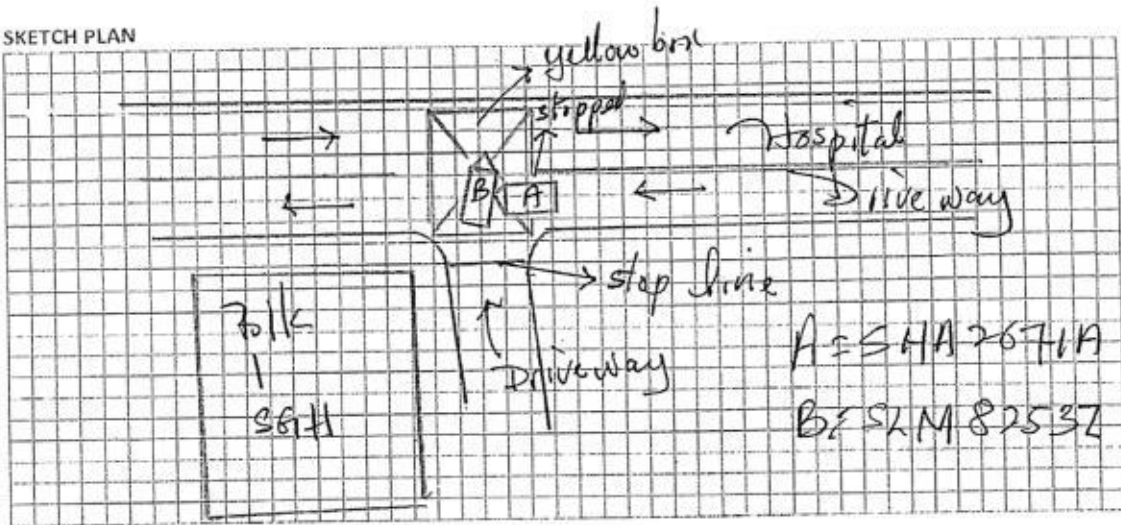 SKETCH PLAN
yellow box
stopped
Hospital
Drive way
B
A
stop line
Driveway
Blk
1
SGH
A = SHA 2671A
B = SLM 8253Z